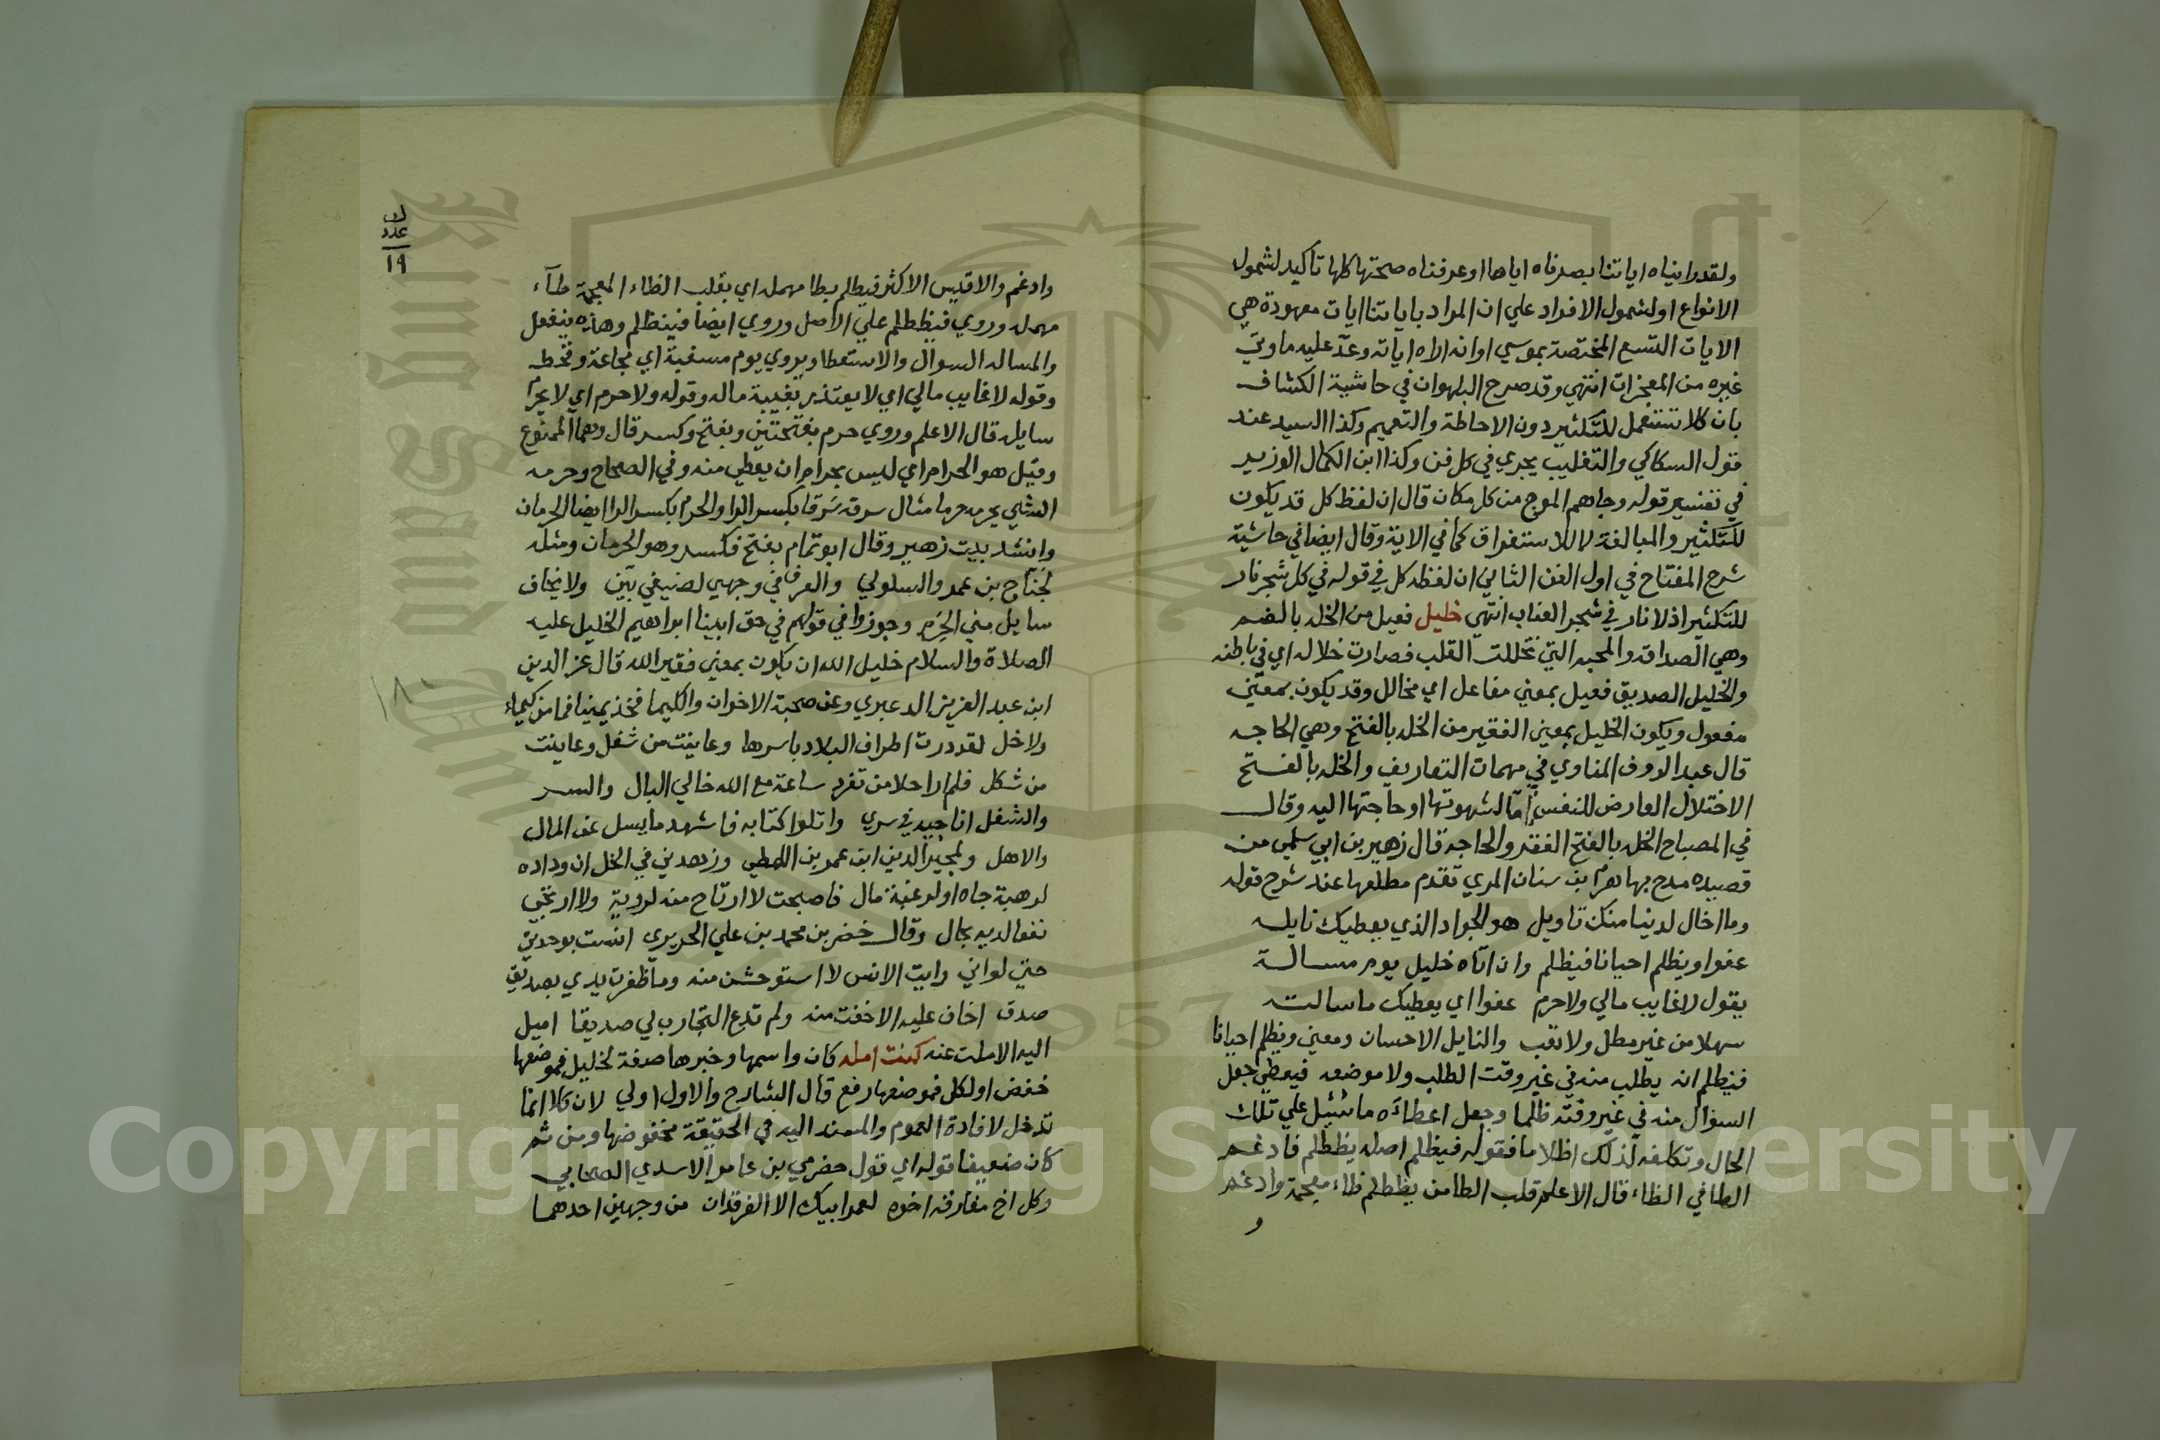 ولقد اريناه اياتنا بصرناه اياها اوعرفناه صحتها كلها تاكيد لشمول
الانواع اولشمول الافراد علي ان المراد باياتنا ايات معهودة هي
الايات التسع المختصة بموسي اوانه اراه اياته وعد عليه ما اوتي
غيره من المعجزات انتهي وقد صرح البلهوان في حاشية الكشاف
بان كلا تستعمل للتكثير دون الاحاطة والتعميم وكذا السيد عند
قول السكاكي والتغليب يجري في كل فن وكذا ابن الكمال الوزير
في تفسير قوله وجاهم الموج من كل مكان قال ان لفظ كل قد يكون
للتكثير والمبالغة لا للاستغراق كما في الاية وقال ايضا في حاشية
شرح المفتاح في اول الفن الثاني ان لفظه كل في قوله في كل شجر نار
للتكثير اذ لا نار في شجر العناب انتهي خليل فعيل من الخله بالضم
وهي الصداقه والمحبه التي تخللت القلب فصارت خلاله اي في باطنه
والخليل الصديق فعيل بمعني مفاعل اي مخالل وقد يكون بمعني
مفعول ويكون الخليل بمعني الفقير من الخله بالفتح وهي الحاجه
قال عبد الروف المناوي في مهمات التعاريف والخله بالفتح
الاختلال العارض للنفس اما لشهوتها او حاجتها اليه وقال
في المصباح الخله بالفتح الفقر والحاجه قال زهير بن ابي سلمي من
قصيده مدح بها هرم بن سنان المري تقدم مطلعها عند شرح قوله
وما اخال لدينا منك تاويل هو الجواد الذي يعطيك نايله
عفوا ويظلم احيانا فيظلم وان اتاه خليل يوم مسالة
يقول لا غايب مالي ولا حرم عفوا اي يعطيك ما سالته
سهلا من غير مطل ولا تعب والنايل الاحسان ومعني ويظلم احيانا
فيظلم انه يطلب منه في غير وقت الطلب ولا موضعه فيعطي جعل
السؤال منه في غير وقته ظلما وجعل اعطاءه ما سئل علي تلك
الحال وتكلفه لذلك اظلاما فقوله فيظلم اصله يظطلم فادغم
الطا في الظاء قال الاعلم قلب الطا من يظطلم ظاء معجمة وادغم
و
وادغم والاقيس الاكثر فيطلم بطا مهمله اي بقلب الظاء المعجمة طاء
مهمله وروي فيظطلم علي الاصل وروي ايضا فينظلم وهذه ينفعل
والمساله السوال والاستعطا ويروي يوم مسغبة اي مجاعة وقحطه
وقوله لا غايب مالي اي لا يعتذر بغيبة ماله وقوله ولا حرم اي لا يحرم
سايله قال الاعلم وروي حرم بفتحتين وبفتح وكسر قال وهما الممنوع
وقيل هو الحرام اي ليس بحرام ان يعطي منه وفي الصحاح وحرمه
الشي يحرمه حرما مثال سرقه سرقا بكسر الرا والحرم بكسر الرا ايضا الحرمان
وانشد بيت زهير وقال ابو تمام بفتح فكسر وهو الحرمان ومثله
لجناح بن عمرو السلولي والعرف في وجهي لضيفي بين ولا يخاف
سايل مني الحرم وجوزوا في قولهم في حق ابينا ابراهيم الخليل عليه
الصلاة والسلام خليل الله ان يكون بمعني فقير الله قال عز الدين
ابن عبد العزيز الدعبري وعن صحبة الاخوان والكيما فخذ يمينا فما من كيمياء
ولا خل لقد درت اطراف البلاد باسرها وعاينت من شغل وعاينت
من شكل فلم ار احلا من تفرد ساعة مع الله خالي البال والسر
والشغل اناجيه في سري واتلوا كتابه فاشهد ما يسل عن المال
والاهل ولمجير الدين ابن عمر بن اللمطي وزهدني في الخل ان وداده
لرهبة جاه او لرغبة مال فاصبحت لا ارتاح منه لروية ولا ارتجي
نفعا لديه بحال وقال خضر بن محمد بن علي الحريري انست بوحدتي
حتي لواني رايت الانس لا استوحشن منه وما ظفرت يدي بصديق
صدق اخاف عليه الا خفت منه ولم تدع التجارب لي صديقا اميل
اليه الا ملت عنه كنت امله كان واسمها وخبرها صفة لخليل فموضعها
خفض اولكل فموضعها رفع قال الشارح والاول اولي لان كلا انما
تدخل لافادة العموم والمسند اليه في الحقيقة مخفوضها ومن ثم
كان ضعيفا قوله اي قول حضرمي بن عامر الاسدي الصحابي
وكل اخ مفارقه اخوه لعمر ابيك الا الفرقدان من وجهين احدهما
عدد
١٩
١٨٠
Copyright © King Saud University
King Saud University
1957